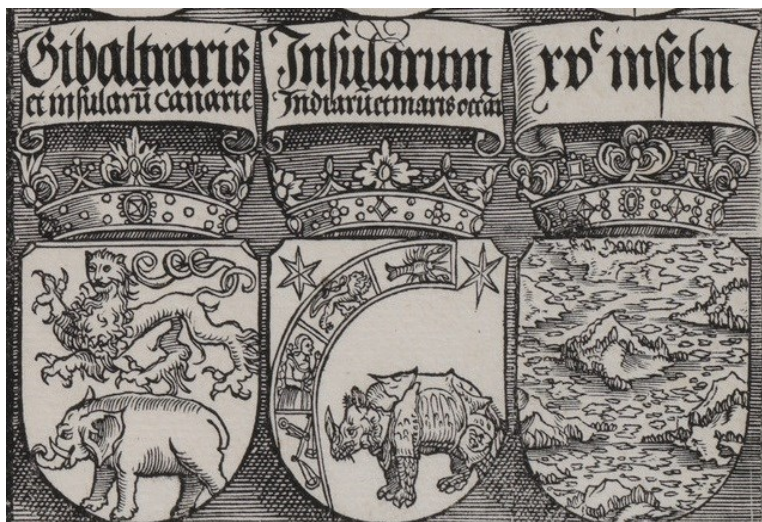 Gibaltraris
et insularū Canarie
Insularum
Indiarū et maris occai
xvᶜ inseln